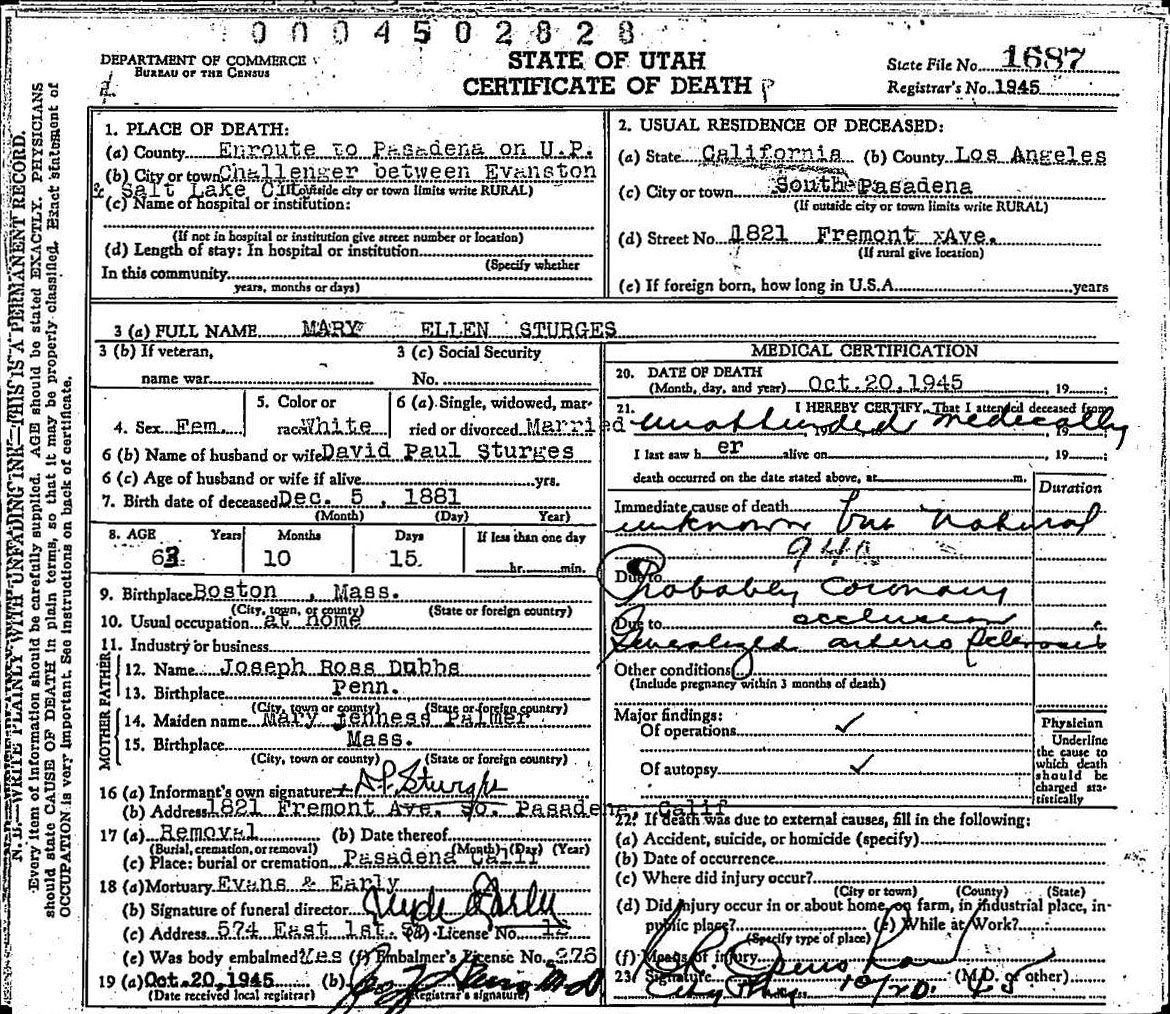 0004502828
DEPARTMENT OF COMMERCE
BUREAU OF THE CENSUS
STATE OF UTAH
CERTIFICATE OF DEATH
State File No. 1687
Registrar's No. 1945
N. B.—WRITE PLAINLY WITH UNFADING INK—THIS IS A PERMANENT RECORD.
Every item of information should be carefully supplied. AGE should be stated EXACTLY. PHYSICIANS
should state CAUSE OF DEATH in plain terms, so that it may be properly classified. Exact statement of
OCCUPATION is very important. See instructions on back of certificate.
1. PLACE OF DEATH:
(a) County Enroute to Pasadena on U.P.
(b) City or town Challenger between Evanston
& Salt Lake City
(If outside city or town limits write RURAL)
(c) Name of hospital or institution:
(If not in hospital or institution give street number or location)
(d) Length of stay: In hospital or institution
(Specify whether
In this community
years, months or days)
2. USUAL RESIDENCE OF DECEASED:
(a) State California (b) County Los Angeles
(c) City or town South Pasadena
(If outside city or town limits write RURAL)
(d) Street No. 1821 Fremont xAve.
(If rural give location)
(e) If foreign born, how long in U.S.A. years
3 (a) FULL NAME MARY ELLEN STURGES
3 (b) If veteran, name war
3 (c) Social Security No.
4. Sex Fem.
5. Color or race White
6 (a) Single, widowed, married or divorced Married
6 (b) Name of husband or wife David Paul Sturges
6 (c) Age of husband or wife if alive yrs.
7. Birth date of deceased Dec. 5, 1881
(Month) (Day) Year)
8. AGE Years Months Days If less than one day
63 10 15 hr. min.
9. Birthplace Boston, Mass.
(City, town, or county) (State or foreign country)
10. Usual occupation at home
11. Industry or business
FATHER
12. Name Joseph Ross Dubbs
13. Birthplace Penn.
(City, town or county) (State or foreign country)
MOTHER
14. Maiden name Mary Jenness Palmer
15. Birthplace Mass.
(City, town or county) (State or foreign country)
16 (a) Informant's own signature Sturges
(b) Address 1821 Fremont Ave. So. Pasadena, Calif
17 (a) Removal (b) Date thereof
(Burial, cremation, or removal) (Month) (Day) (Year)
(c) Place: burial or cremation Pasadena Calif
18 (a) Mortuary Evans & Early
(b) Signature of funeral director Early
(c) Address 574 East 1st. So (d) License No.
(e) Was body embalmed? Yes (f) Embalmer's License No. 276
19 (a) Oct. 20, 1945 (b) M.D.
(Date received local registrar) Registrar's signature)
MEDICAL CERTIFICATION
20. DATE OF DEATH
(Month, day, and year) Oct. 20, 1945, 19
21. I HEREBY CERTIFY, That I attended deceased from
unattended medically
I last saw h er alive on , 19
death occurred on the date stated above, at m.
Duration
Immediate cause of death
unknown but natural
94a
Due to Probably coronary
Due to occlusion
Generalized arterio sclerosis
Other conditions
(Include pregnancy within 3 months of death)
Major findings:
Of operations ✓
Of autopsy ✓
Physician
Underline
the cause to
which death
should be
charged sta-
tistically
22. If death was due to external causes, fill in the following:
(a) Accident, suicide, or homicide (specify)
(b) Date of occurrence
(c) Where did injury occur?
(City or town) (County) (State)
(d) Did injury occur in or about home, on farm, in industrial place, in-
public place? (e) While at Work?
(Specify type of place)
(f) Means of injury
23. Signature (M.D. or other)
City Phy 10/20 45